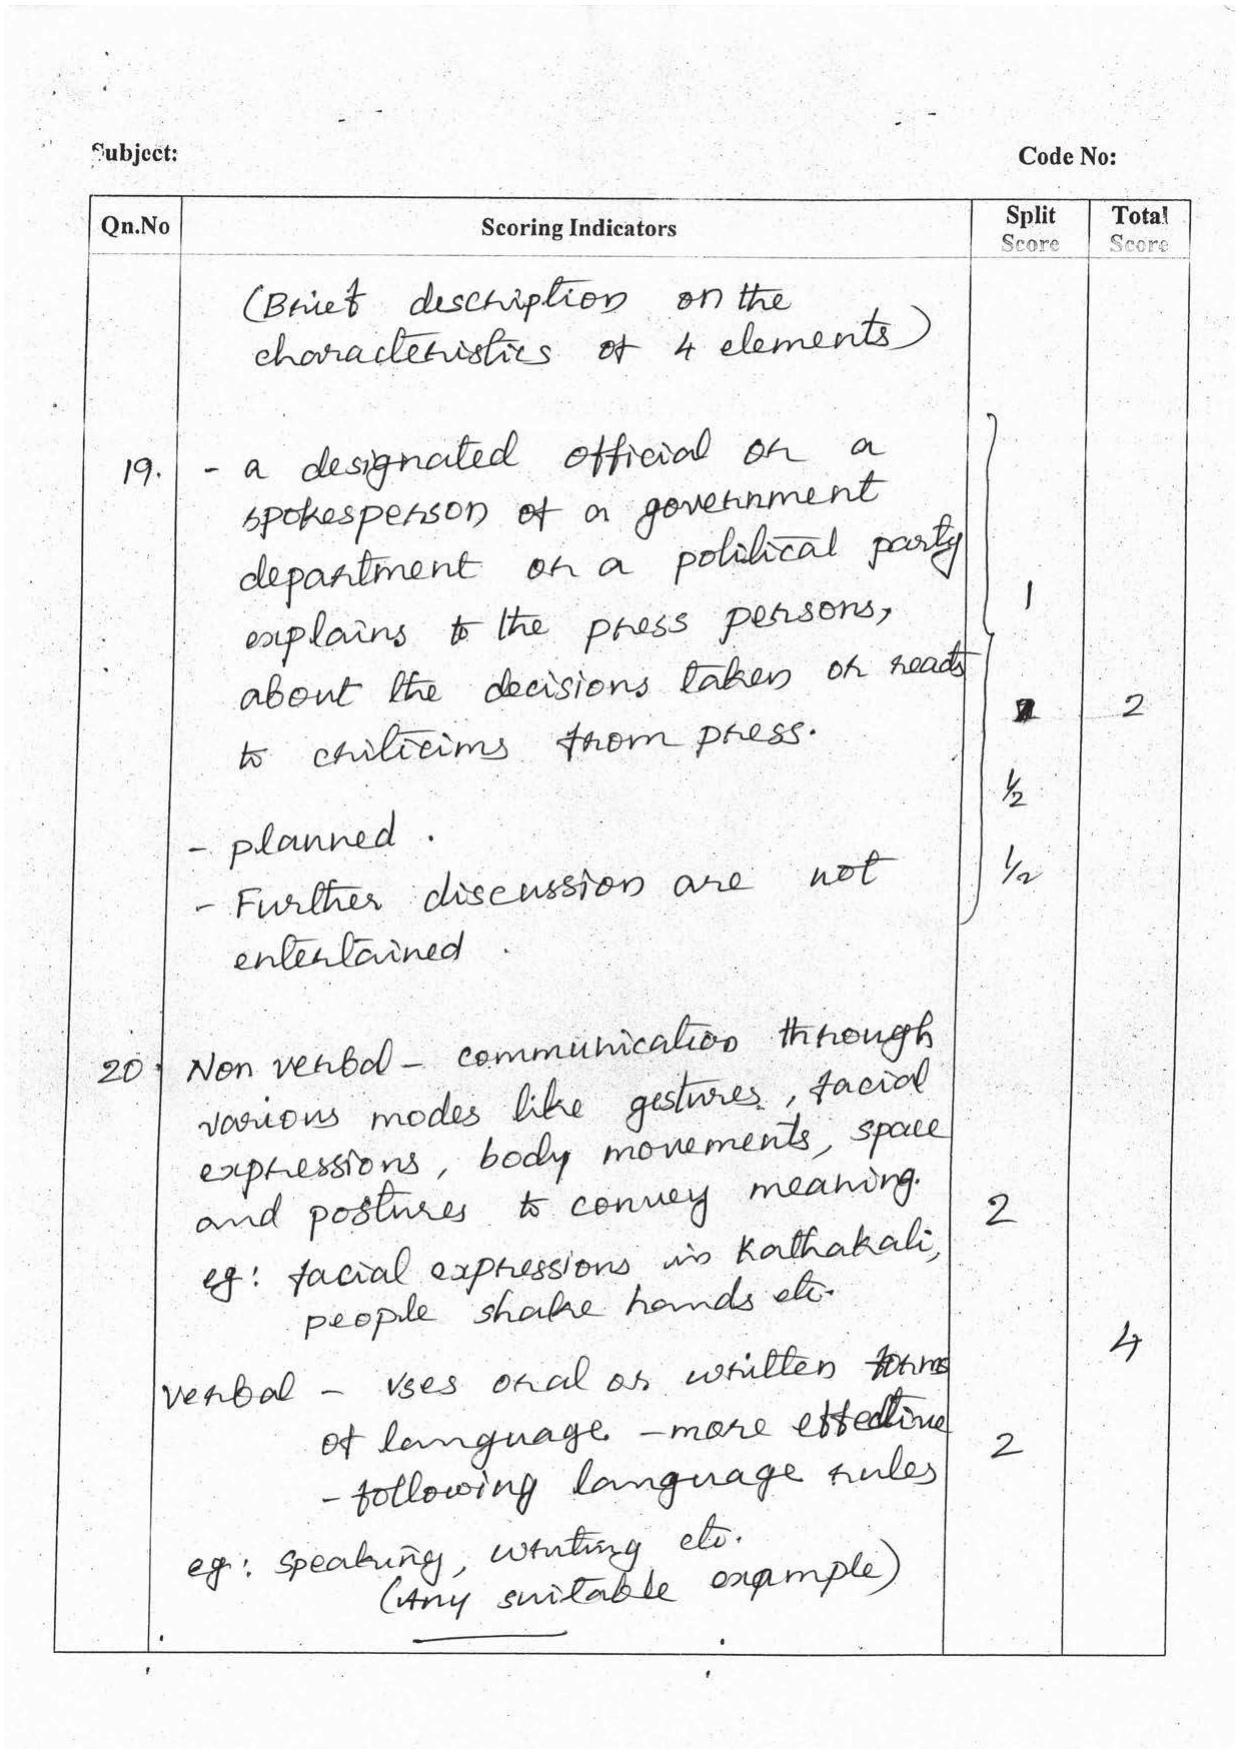 Subject:
Code No:
Qn.No
Scoring Indicators
Split Score
Total Score
(Brief description on the
characteristics of 4 elements)
19. - a designated official or a
spokesperson of a government
department or a political party
explains to the press persons, 1
about the decisions taken or reads
to critICims from press. 2
1/2
- planned .
- Further discussion are not 1/2
entertained .
20. Non verbal - communication through
various modes like gestures, facial
expressions, body movements, space
and postures to convey meaning. 2
eg: facial expressions in Kathakali,
people shake hands etc.
4
verbal - uses oral or written forms
of language - more effective 2
- following language rules
eg: speaking, writing etc.
(Any suitable example)